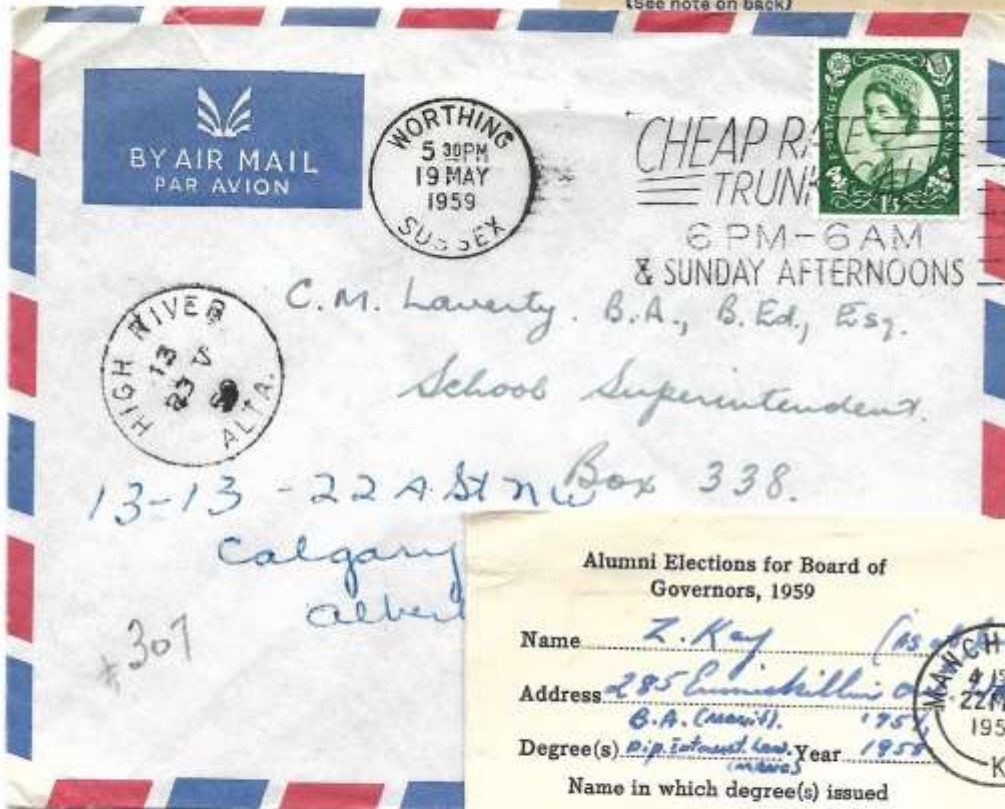 (See note on back)
BY AIR MAIL
PAR AVION
WORTHING
5 30PM
19 MAY
1959
SUSSEX
CHEAP
TRUN
6 PM-6 AM
& SUNDAY AFTERNOONS
POSTAGE
REVENUE
1/3
HIGH RIVER
13
23 V
ALTA.
C.M. Laverty. B.A., B.Ed., Esq.
School Superintendent.
Box 338.
13-13 - 22 A. St NW
Calgary
Albert
307
Alumni Elections for Board of
Governors, 1959
Name Z. Kay
Address 285
B.A. (Manit).
Degree(s) Dip. Internat. Law. Year 1958
Name in which degree(s) issued
MANCH
22
195
K